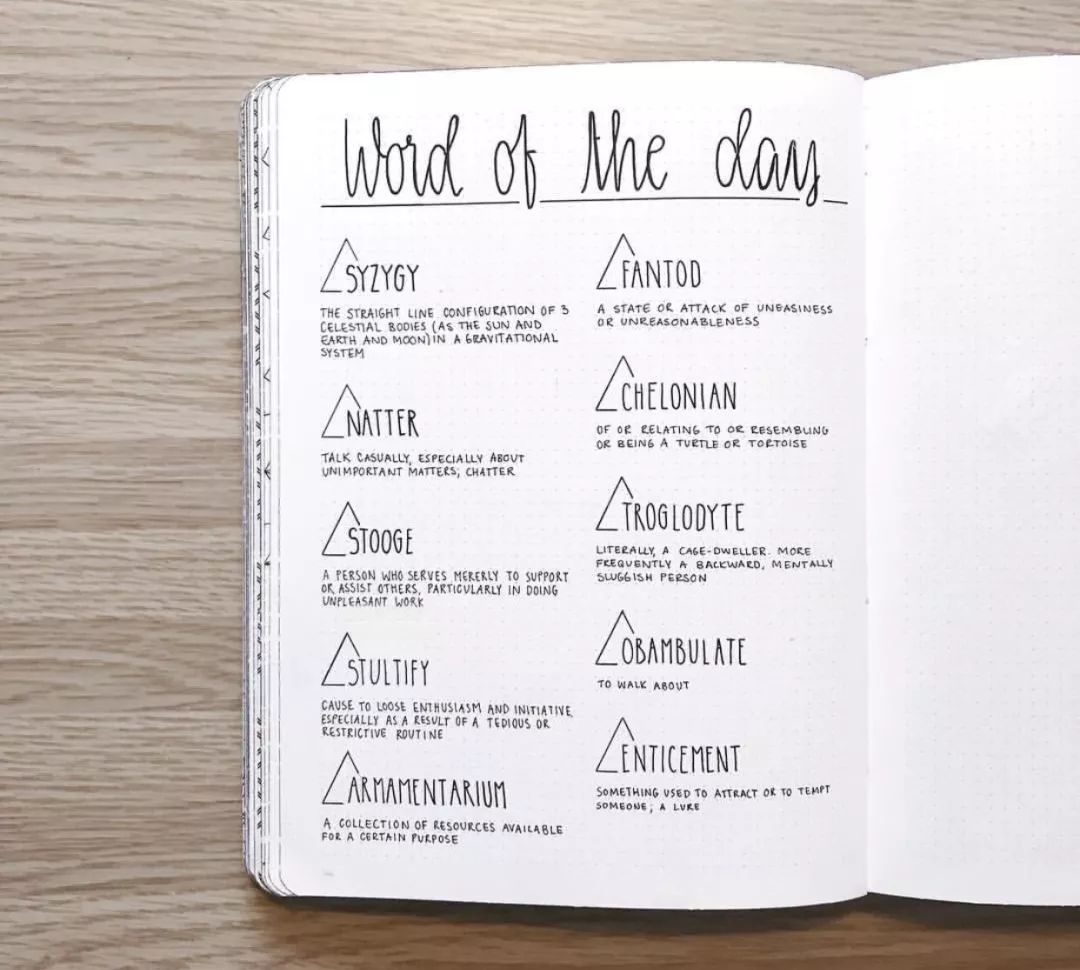 Word of the day
SYZYGY
THE STRAIGHT LINE CONFIGURATION OF 3
CELESTIAL BODIES (AS THE SUN AND
EARTH AND MOON) IN A GRAVITATIONAL
SYSTEM
NATTER
TALK CASUALLY, ESPECIALLY ABOUT
UNIMPORTANT MATTERS; CHATTER
STOOGE
A PERSON WHO SERVES MERERLY TO SUPPORT
OR ASSIST OTHERS, PARTICULARLY IN DOING
UNPLEASANT WORK
STULTIFY
CAUSE TO LOOSE ENTHUSIASM AND INITIATIVE,
ESPECIALLY AS A RESULT OF A TEDIOUS OR
RESTRICTIVE ROUTINE
ARMAMENTARIUM
A COLLECTION OF RESOURCES AVAILABLE
FOR A CERTAIN PURPOSE
FANTOD
A STATE OR ATTACK OF UNEASINESS
OR UNREASONABLENESS
CHELONIAN
OF OR RELATING TO OR RESEMBLING
OR BEING A TURTLE OR TORTOISE
TROGLODYTE
LITERALLY, A CAGE-DWELLER. MORE
FREQUENTLY A BACKWARD, MENTALLY
SLUGGISH PERSON
OBAMBULATE
TO WALK ABOUT
ENTICEMENT
SOMETHING USED TO ATTRACT OR TO TEMPT
SOMEONE; A LURE